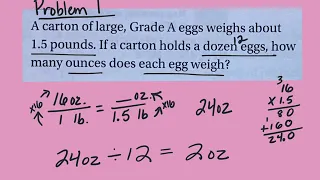 Problem 1
A carton of large, Grade A eggs weighs about
1.5 pounds. If a carton holds a dozen eggs, how
12
many ounces does each egg weigh?
x16 16 oz. = __oz. x16
1 lb. 1.5 lb.
24oz
3
16
x 1.5
80
+160
24.0
24oz ÷ 12 = 2oz